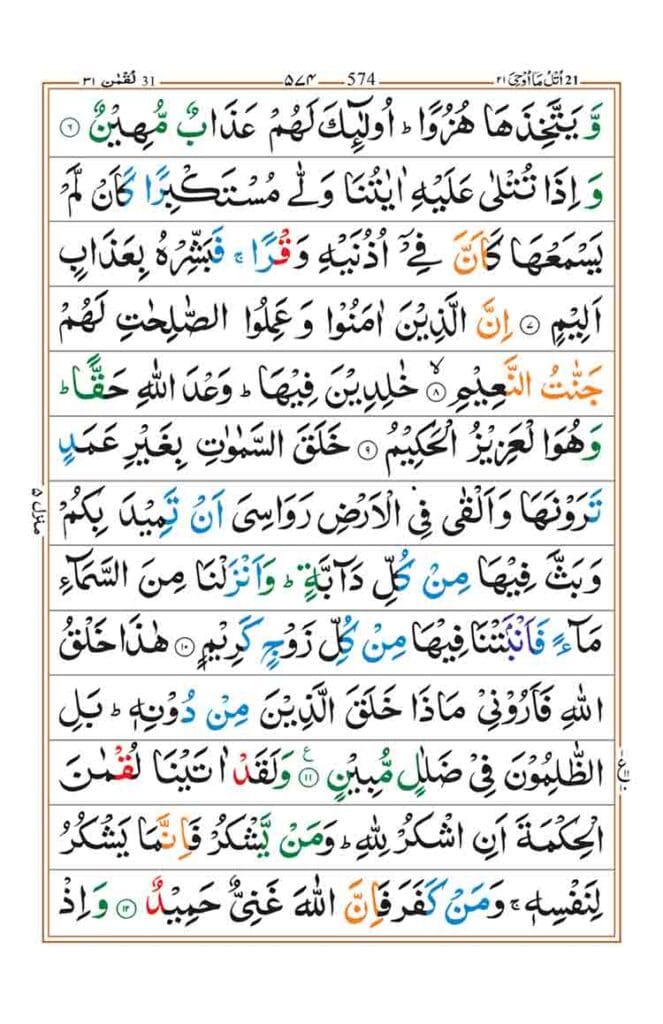 21 اُتْلُ مَا اُوْحِيَ ٢١
574 ۵۷۴
31 لُقْمٰن ٣١
وَّ يَتَّخِذَهَا هُزُوًا ؕ اُولٰٓئِكَ لَهُمْ عَذَابٌ مُّهِيْنٌ ۝۶
وَ اِذَا تُتْلٰى عَلَيْهِ اٰيٰتُنَا وَلّٰى مُسْتَكْبِرًا كَاَنْ لَّمْ
يَسْمَعْهَا كَاَنَّ فِيْۤ اُذُنَيْهِ وَقْرًا ۚ فَبَشِّرْهُ بِعَذَابٍ
اَلِيْمٍ ۝۷ اِنَّ الَّذِيْنَ اٰمَنُوْا وَ عَمِلُوا الصّٰلِحٰتِ لَهُمْ
جَنّٰتُ النَّعِيْمِ ۙ۝۸ خٰلِدِيْنَ فِيْهَا ؕ وَعْدَ اللّٰهِ حَقًّا ؕ
وَهُوَ الْعَزِيْزُ الْحَكِيْمُ ۝۹ خَلَقَ السَّمٰوٰتِ بِغَيْرِ عَمَدٍ
تَرَوْنَهَا وَ اَلْقٰى فِي الْاَرْضِ رَوَاسِيَ اَنْ تَمِيْدَ بِكُمْ
وَ بَثَّ فِيْهَا مِنْ كُلِّ دَآبَّةٍ ؕ وَ اَنْزَلْنَا مِنَ السَّمَآءِ
مَآءً فَاَنْۢبَتْنَا فِيْهَا مِنْ كُلِّ زَوْجٍ كَرِيْمٍ ۝۱۰ هٰذَا خَلْقُ
اللّٰهِ فَاَرُوْنِيْ مَاذَا خَلَقَ الَّذِيْنَ مِنْ دُوْنِهٖ ؕ بَلِ
الظّٰلِمُوْنَ فِيْ ضَلٰلٍ مُّبِيْنٍ ۝۱۱ ع وَلَقَدْ اٰتَيْنَا لُقْمٰنَ
الْحِكْمَةَ اَنِ اشْكُرْ لِلّٰهِ ؕ وَمَنْ يَّشْكُرْ فَاِنَّمَا يَشْكُرُ
لِنَفْسِهٖ ۚ وَمَنْ كَفَرَ فَاِنَّ اللّٰهَ غَنِيٌّ حَمِيْدٌ ۝۱۲ وَ اِذْ
منزل ۵